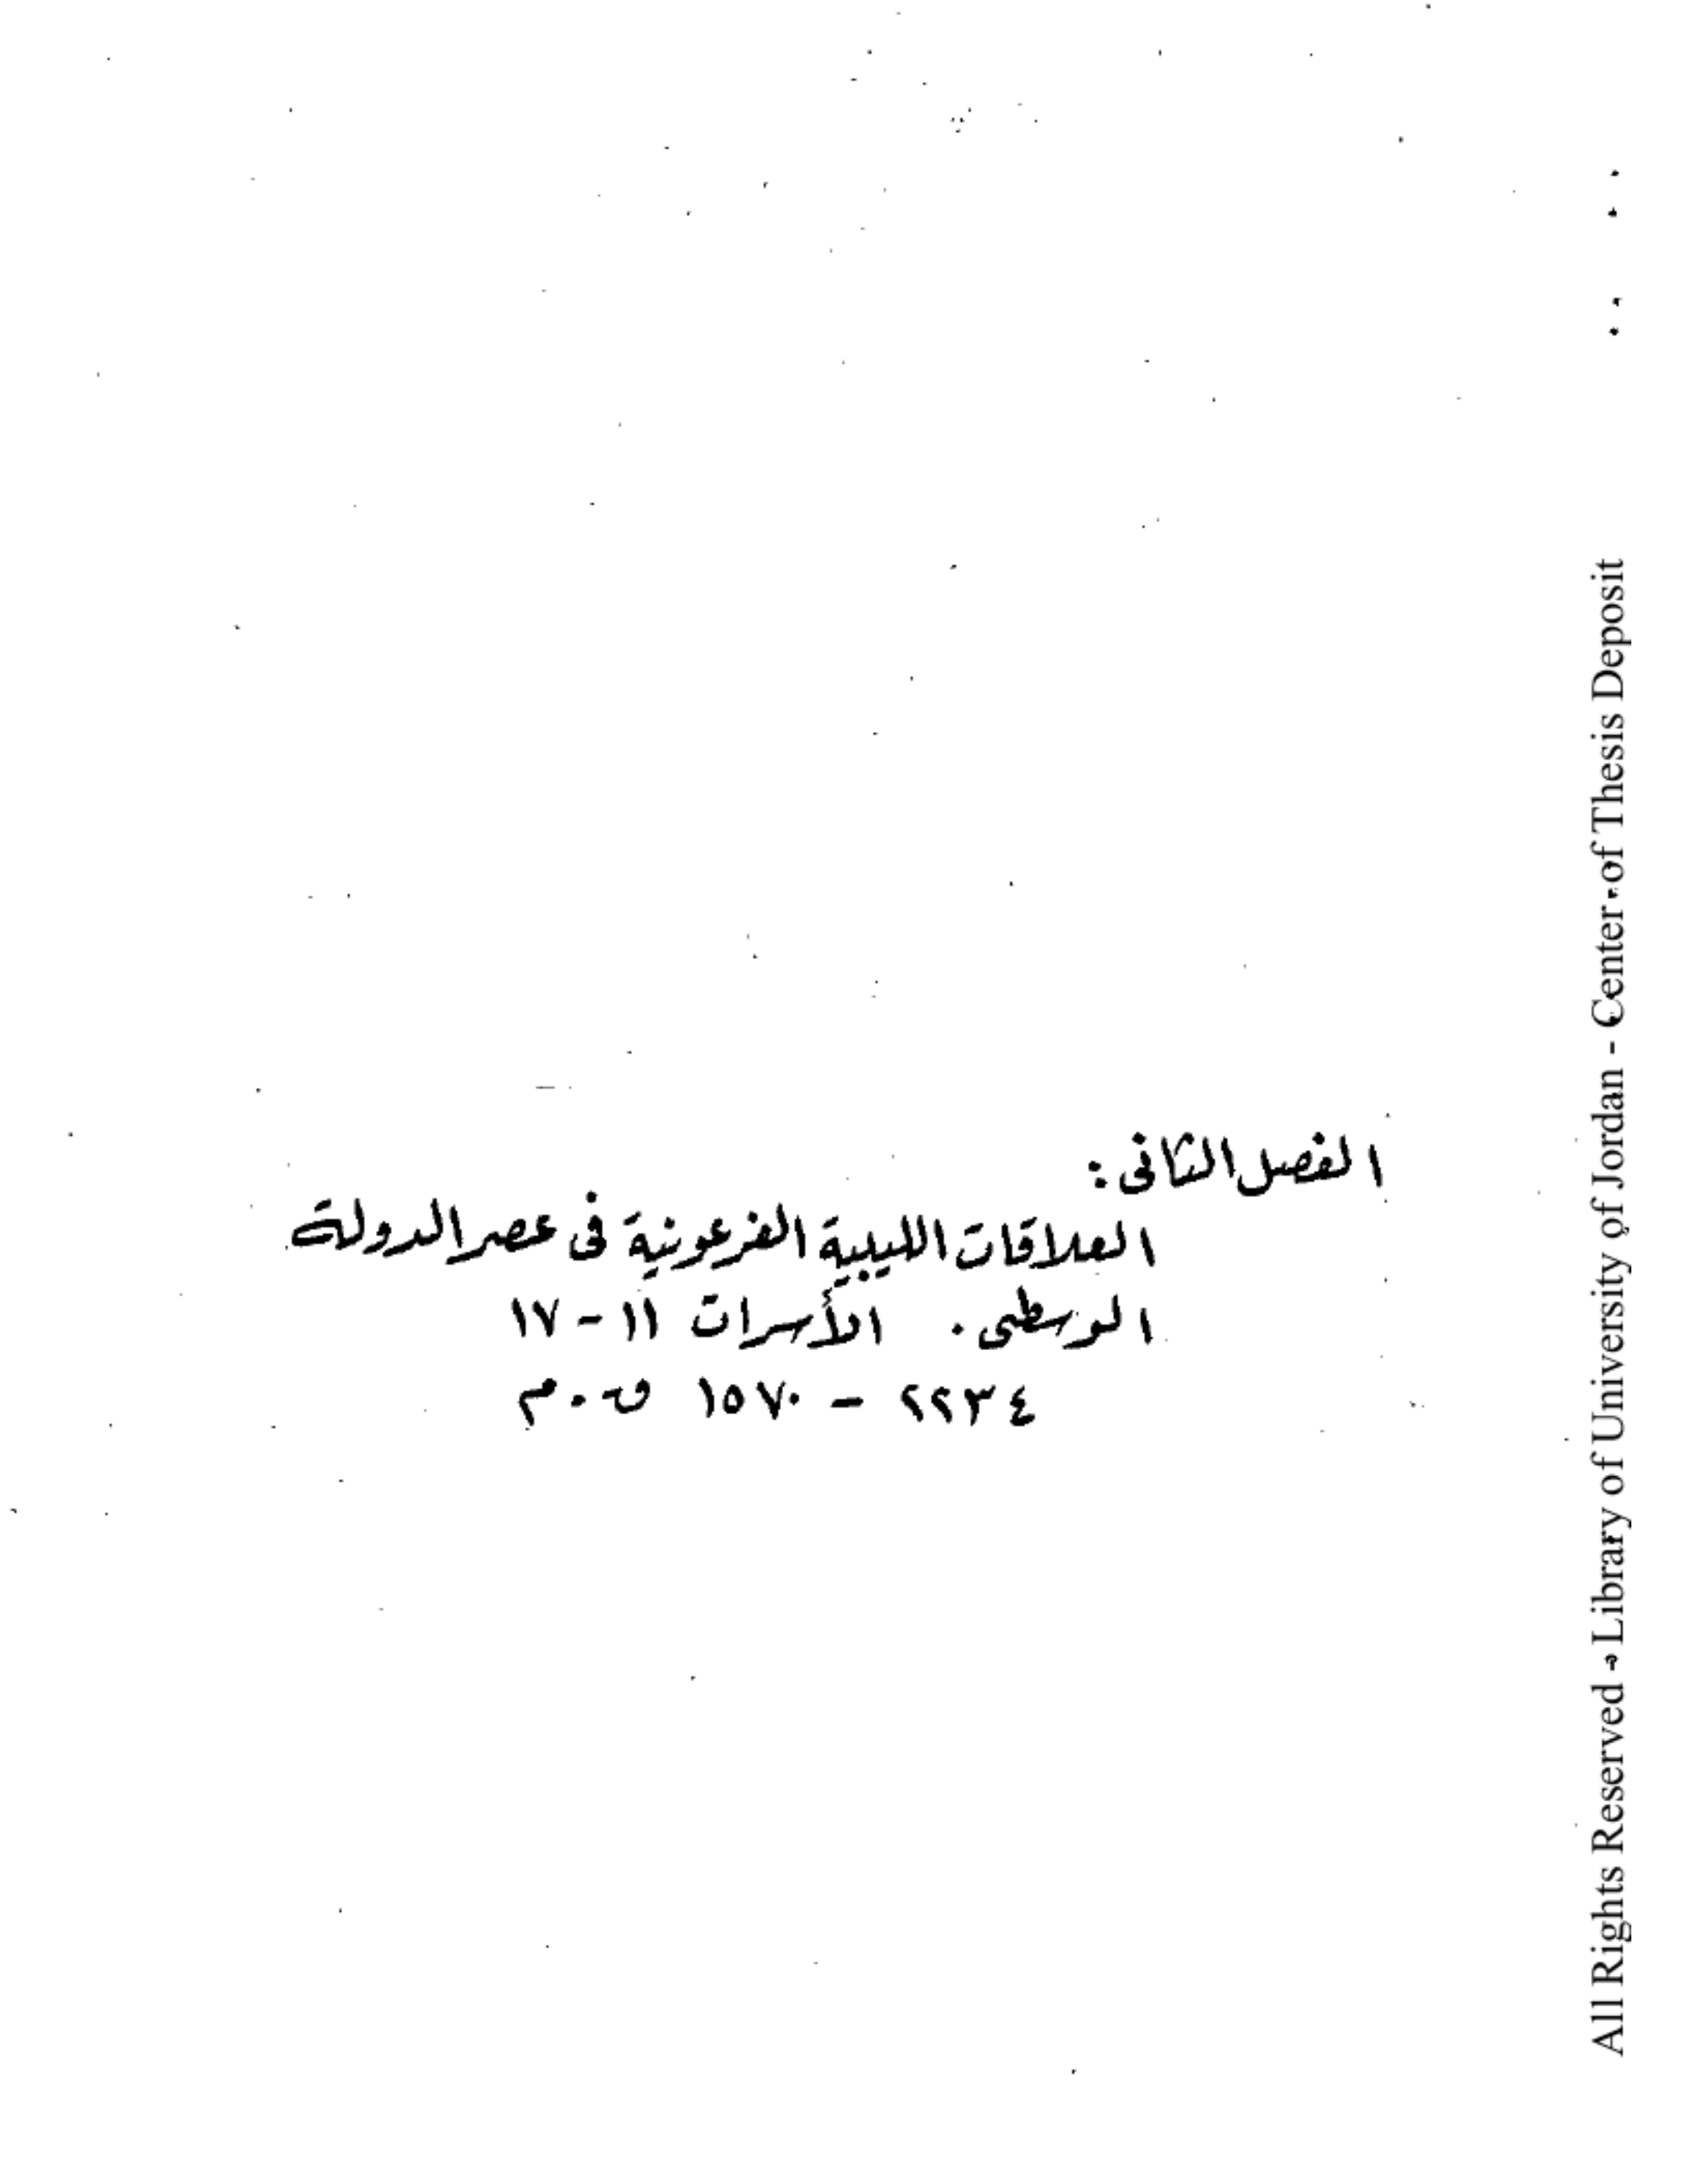 الفصل الثانى :
العلاقات الليبية الفرعونية فى عصر الدولة
الوسطى . الأسرات ١١ - ١٧
٢٢٣٤ - ١٥٧٠ ق . م
All Rights Reserved - Library of University of Jordan - Center of Thesis Deposit